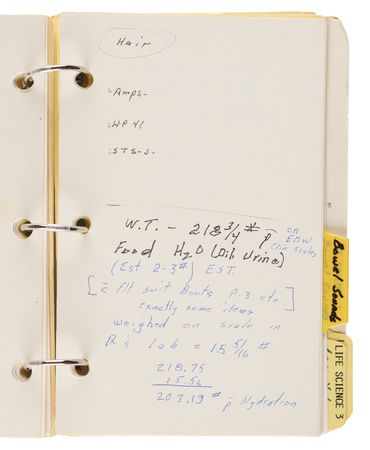 Hair
Amps-
HP 41
STS-3.
W.T. - 218 3/4 # p̄ on
EDW
Clin Scales
Food H2O (Dil. Urine)
(Est 2-3#) EST.
[c̄ Flt suit Boots P.3 etc.]
exactly same items
weighed on scale in
R's lab = 15 5/16 #
218.75
15.56
203.19 # p̄ Hydration
Bowel Sounds
LIFE SCIENCE 3